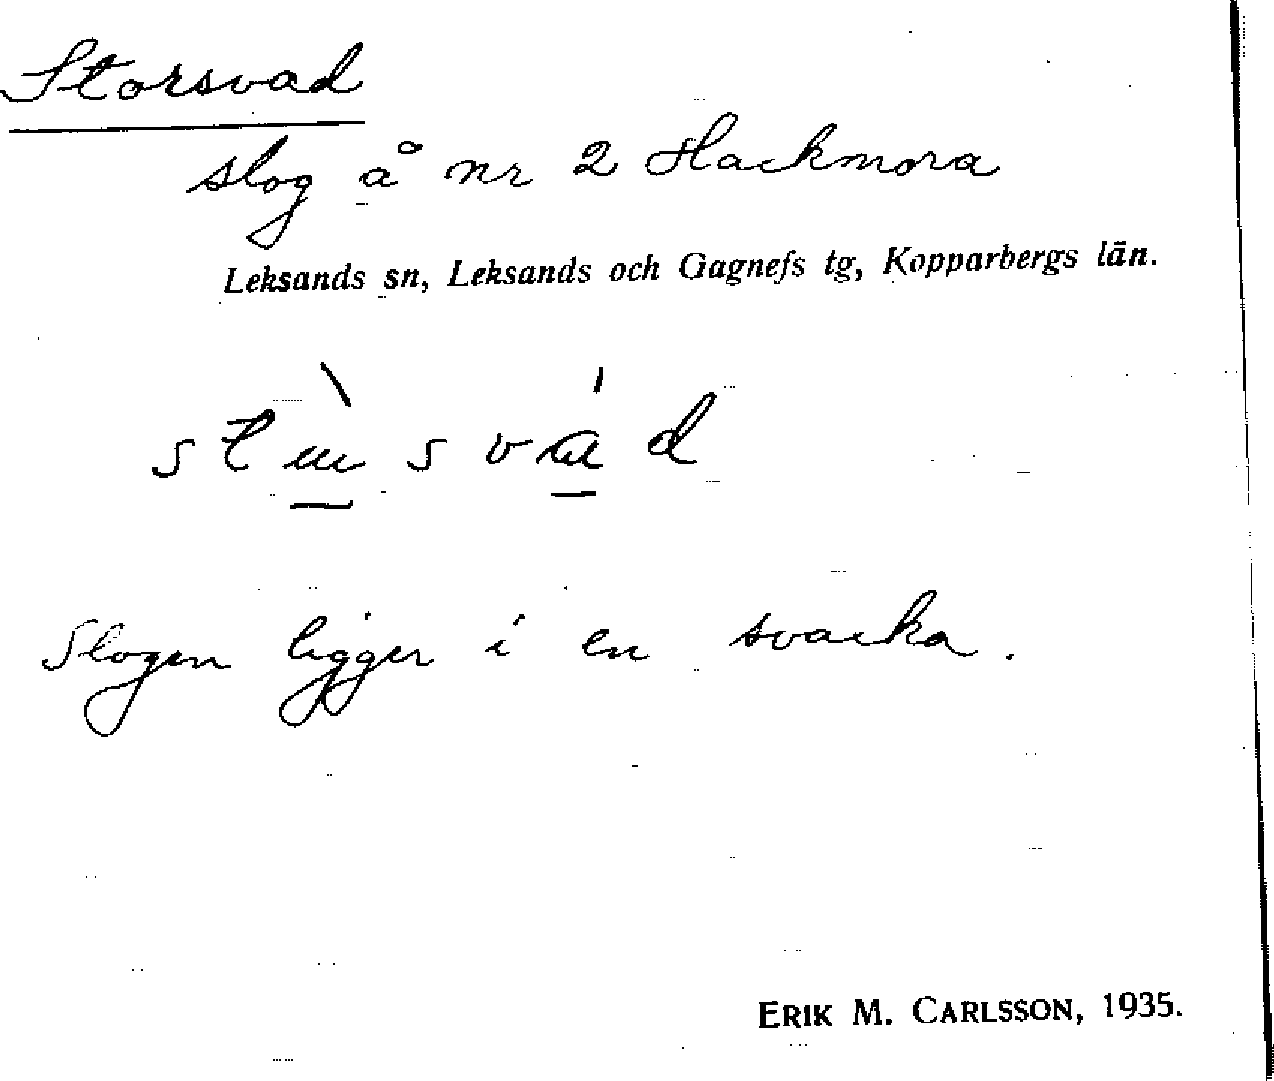 Storsvad
slog å nr 2 Hackmora
Leksands sn, Leksands och Gagnefs tg, Kopparbergs län.
Slogen ligger i en svacka.
ERIK M. CARLSSON, 1935.